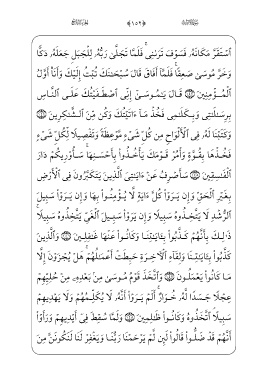 ٱسْتَقَرَّ مَكَانَهُۥ فَسَوْفَ تَرَىٰنِى ۚ فَلَمَّا تَجَلَّىٰ رَبُّهُۥ لِلْجَبَلِ جَعَلَهُۥ دَكًّا
وَخَرَّ مُوسَىٰ صَعِقًا ۚ فَلَمَّآ أَفَاقَ قَالَ سُبْحَٰنَكَ تُبْتُ إِلَيْكَ وَأَنَا۠ أَوَّلُ
ٱلْمُؤْمِنِينَ ١٤٣ قَالَ يَٰمُوسَىٰٓ إِنِّى ٱصْطَفَيْتُكَ عَلَى ٱلنَّاسِ
بِرِسَٰلَٰتِى وَبِكَلَٰمِى فَخُذْ مَآ ءَاتَيْتُكَ وَكُن مِّنَ ٱلشَّٰكِرِينَ ١٤٤
وَكَتَبْنَا لَهُۥ فِى ٱلْأَلْوَاحِ مِن كُلِّ شَىْءٍ مَّوْعِظَةً وَتَفْصِيلًا لِّكُلِّ شَىْءٍ
فَخُذْهَا بِقُوَّةٍ وَأْمُرْ قَوْمَكَ يَأْخُذُوا۟ بِأَحْسَنِهَا ۚ سَأُو۟رِيكُمْ دَارَ
ٱلْفَٰسِقِينَ ١٤٥ سَأَصْرِفُ عَنْ ءَايَٰتِىَ ٱلَّذِينَ يَتَكَبَّرُونَ فِى ٱلْأَرْضِ
بِغَيْرِ ٱلْحَقِّ وَإِن يَرَوْا۟ كُلَّ ءَايَةٍ لَّا يُؤْمِنُوا۟ بِهَا وَإِن يَرَوْا۟ سَبِيلَ
ٱلرُّشْدِ لَا يَتَّخِذُوهُ سَبِيلًا وَإِن يَرَوْا۟ سَبِيلَ ٱلْغَىِّ يَتَّخِذُوهُ سَبِيلًا ۚ
ذَٰلِكَ بِأَنَّهُمْ كَذَّبُوا۟ بِـَٔايَٰتِنَا وَكَانُوا۟ عَنْهَا غَٰفِلِينَ ١٤٦ وَٱلَّذِينَ
كَذَّبُوا۟ بِـَٔايَٰتِنَا وَلِقَآءِ ٱلْـَٔاخِرَةِ حَبِطَتْ أَعْمَٰلُهُمْ ۚ هَلْ يُجْزَوْنَ إِلَّا
مَا كَانُوا۟ يَعْمَلُونَ ١٤٧ وَٱتَّخَذَ قَوْمُ مُوسَىٰ مِنۢ بَعْدِهِۦ مِنْ حُلِيِّهِمْ
عِجْلًا جَسَدًا لَّهُۥ خُوَارٌ ۚ أَلَمْ يَرَوْا۟ أَنَّهُۥ لَا يُكَلِّمُهُمْ وَلَا يَهْدِيهِمْ
سَبِيلًا ۘ ٱتَّخَذُوهُ وَكَانُوا۟ ظَٰلِمِينَ ١٤٨ وَلَمَّا سُقِطَ فِىٓ أَيْدِيهِمْ وَرَأَوْا۟
أَنَّهُمْ قَدْ ضَلُّوا۟ قَالُوا۟ لَئِن لَّمْ يَرْحَمْنَا رَبُّنَا وَيَغْفِرْ لَنَا لَنَكُونَنَّ مِنَ